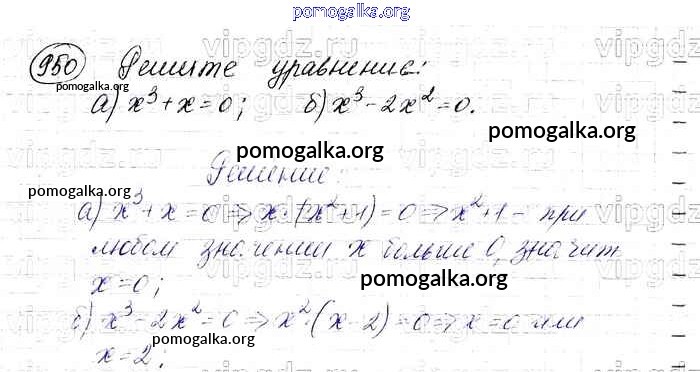 pomogalka.org
950 Решите уравнение:
а) x³+x=0; б) x³-2x²=0.
pomogalka.org
pomogalka.org
pomogalka.org
Решение:
pomogalka.org
а) x³+x=0⇒x·(x²+1)=0⇒x²+1 - при
любом значении x больше 0, значит
x=0;
pomogalka.org
б) x³-2x²=0⇒x²·(x-2)=0⇒x=0 или
x=2;
pomogalka.org